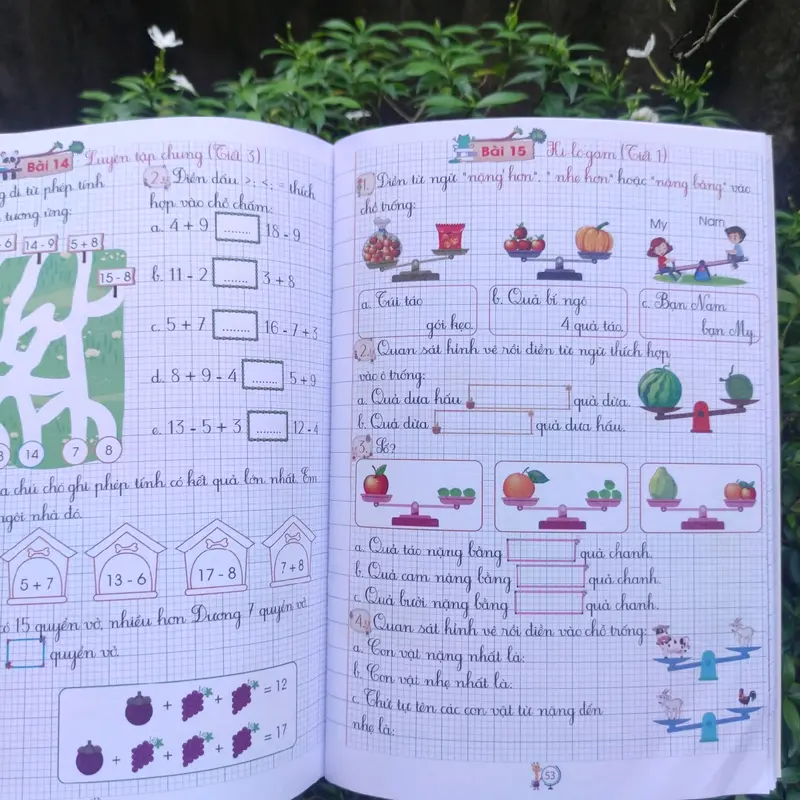 Bài 14 Luyện tập chung (Tiết 3)
g đi từ phép tính
tương ứng:
- 6 14 - 9 5 + 8
15 - 8
14 7 8
2. Điền dấu >; <; = thích
hợp vào chỗ chấm:
a. 4 + 9 ........ 18 - 9
b. 11 - 2 ........ 3 + 8
c. 5 + 7 ........ 16 - 7 + 3
d. 8 + 9 - 4 ........ 5 + 9
e. 13 - 5 + 3 ........ 12 - 4
a chú chó ghi phép tính có kết quả lớn nhất. Em
ngôi nhà đó.
5 + 7 13 - 6 17 - 8 7 + 8
có 15 quyển vở, nhiều hơn Dương 7 quyển vở.
quyển vở.
+ + = 12
+ + + = 17
Bài 15 Ki-lô-gam (Tiết 1)
1. Điền từ ngữ "nặng hơn", "nhẹ hơn" hoặc "nặng bằng" vào
chỗ trống:
My Nam
a. Túi táo
gói kẹo.
b. Quả bí ngô
4 quả táo.
c. Bạn Nam
bạn My.
2. Quan sát hình vẽ rồi điền từ ngữ thích hợp
vào ô trống:
a. Quả dưa hấu quả dừa.
b. Quả dừa quả dưa hấu.
3. Số?
a. Quả táo nặng bằng quả chanh.
b. Quả cam nặng bằng quả chanh.
c. Quả bưởi nặng bằng quả chanh.
4. Quan sát hình vẽ rồi điền vào chỗ trống:
a. Con vật nặng nhất là:
b. Con vật nhẹ nhất là:
c. Thứ tự tên các con vật từ nặng đến
nhẹ là:
53